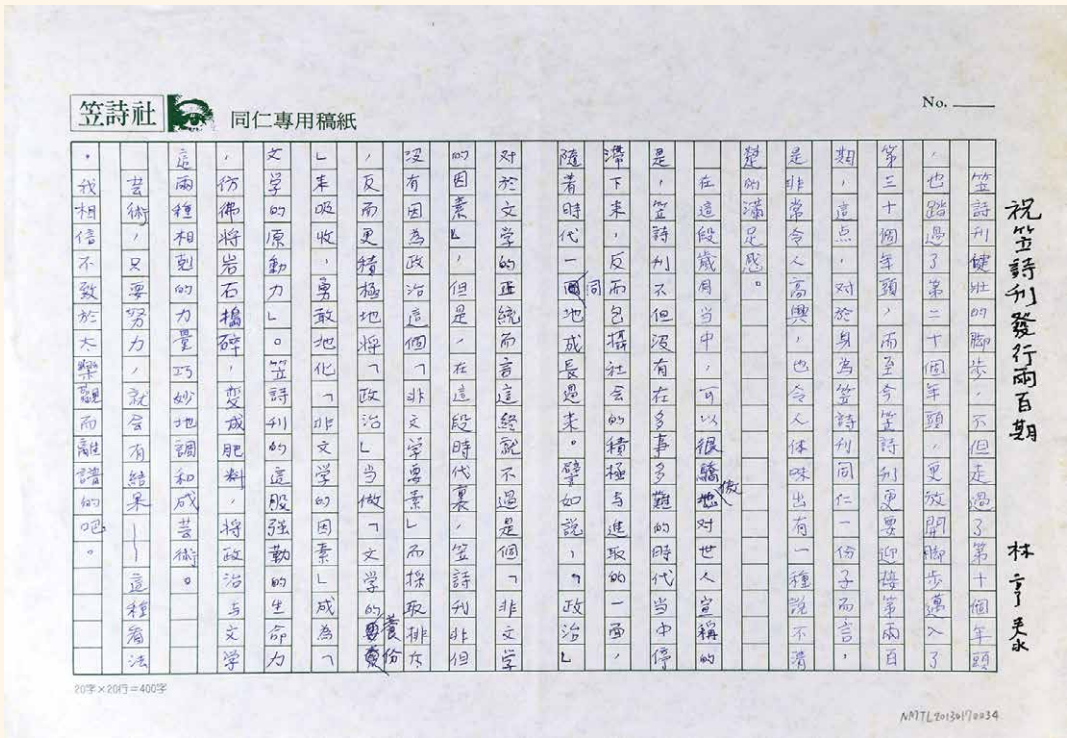 笠詩社 同仁專用稿紙
No.
祝笠詩刊發行兩百期
林亨泰
笠詩刊健壯的脚步，不但走過了第十個年頭
，也踏過了第二十個年頭，更放開脚步邁入了
第三十個年頭，而至今笠詩刊更要迎接第兩百
期，這点，对於身為笠詩刊同仁一份子而言，
是非常令人高興，也令人体味出有一種說不清
楚的滿足感。
在這段歲月当中，可以很驕傲地对世人宣稱的
是，笠詩刊不但没有在多事多難的時代当中停
滯下来，反而包攝社会的積極与進取的一面，
隨著時代一同地成長過来。譬如說，「政治」
对於文学的正統而言這終就不過是個「非文学
的因素」，但是，在這段時代裏，笠詩刊非但
没有因為政治這個「非文学要素」而採取排斥
，反而更積極地將「政治」当做「文学的養份
」来吸收，勇敢地化「非文学的因素」成為「
文学的原動力」。笠詩刊的這股強勁的生命力
，彷彿將岩石搗碎，変成肥料，將政治与文学
這兩種相剋的力量巧妙地調和成芸術。
芸術，只要努力，就会有結果——這種看法
，我相信不致於太樂觀而離譜的吧。
20字×20行=400字
NMTL20130170034